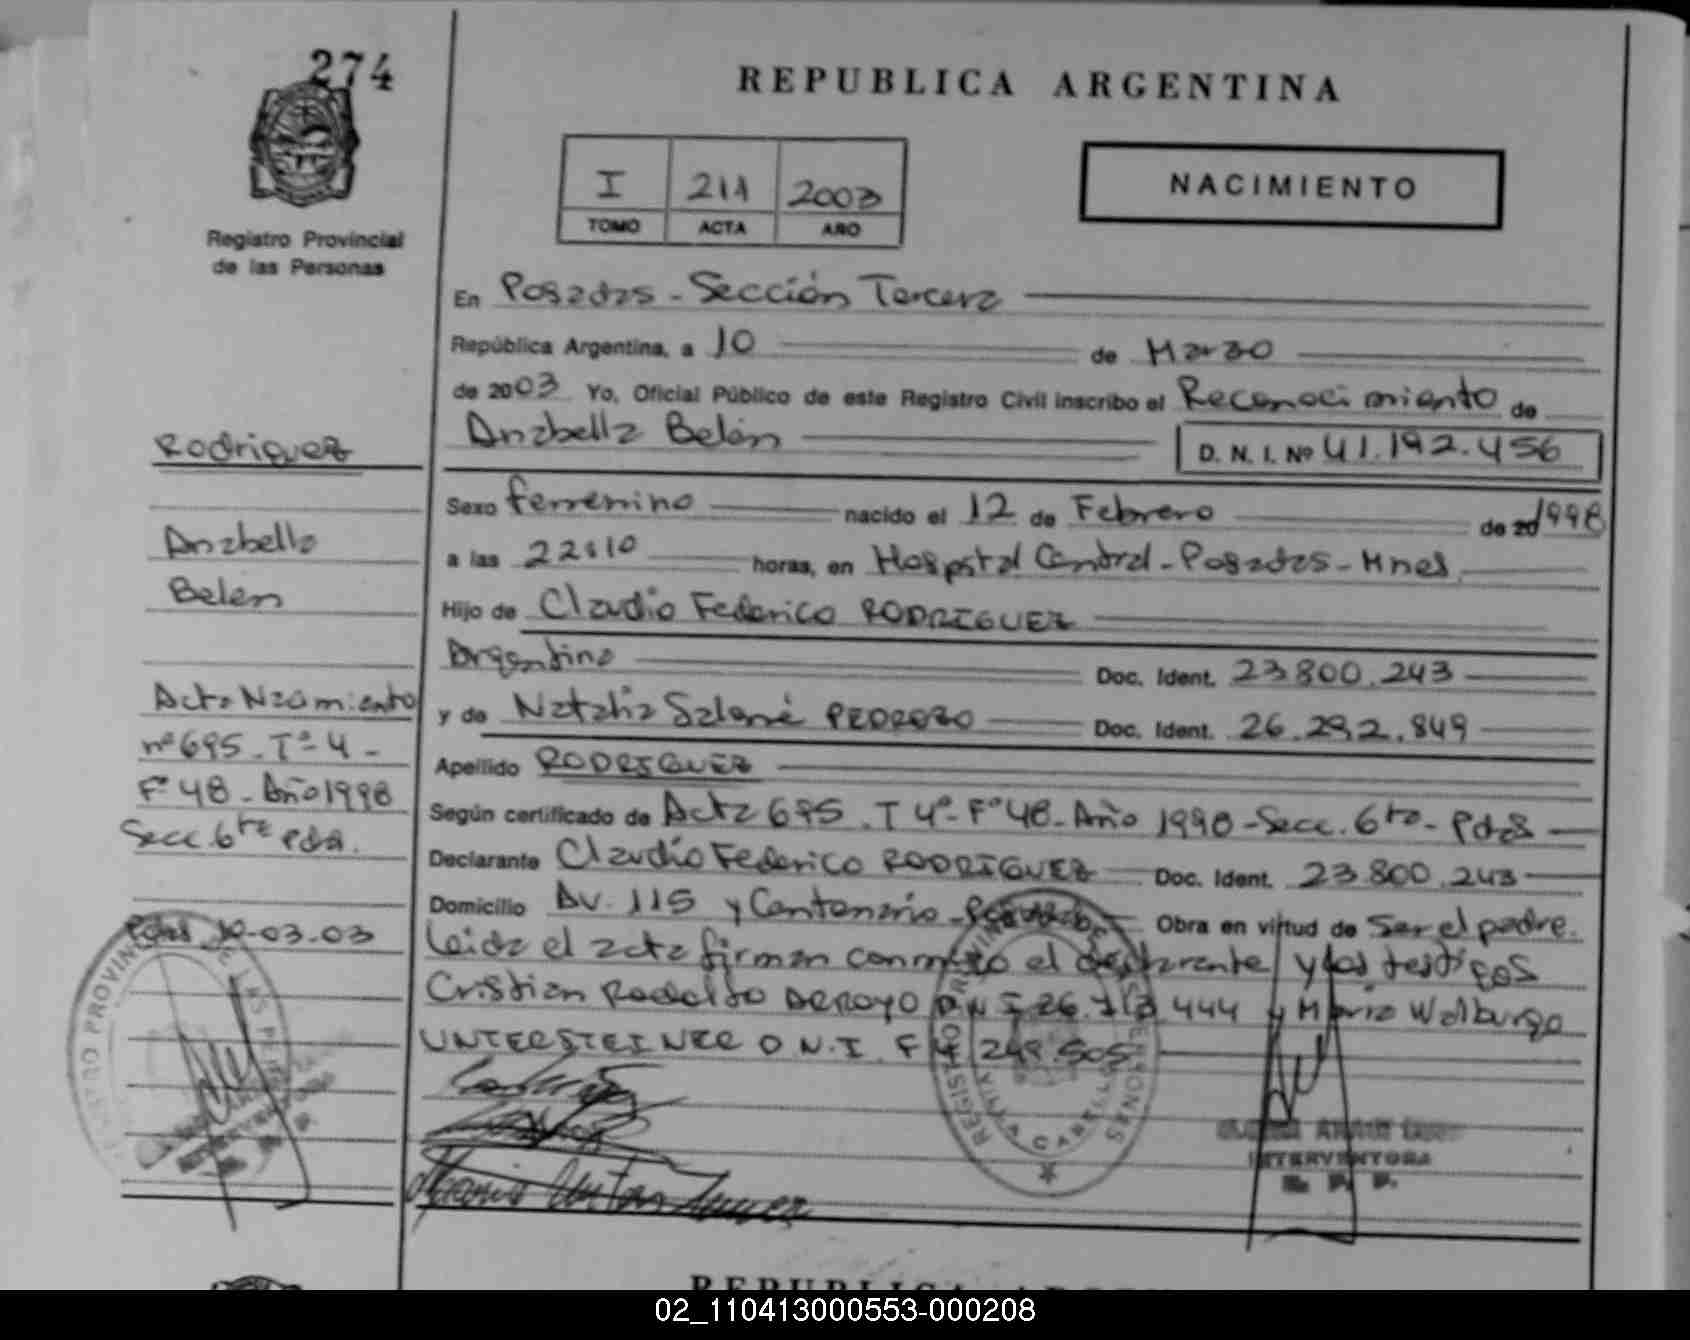 274
REPUBLICA ARGENTINA
I 211 2003
TOMO ACTA AÑO
NACIMIENTO
Registro Provincial
de las Personas
En Posadas - Sección Tercera
República Argentina, a 10 de Marzo
de 2003 Yo, Oficial Público de este Registro Civil inscribo el Reconocimiento de
Anabella Belén D. N. I. Nº 41.192.456
Rodriguez
Anabella
Belen
Acta Nacimiento
nº 695 - Tº - 4 -
Fº 48 - Año 1998
Secc. 6ta Pdas.
Pdas 10-03-03
Sexo femenino nacido el 12 de Febrero de 20 1998
a las 22:10 horas, en Hospital Central - Posadas - Mnes
Hijo de Claudio Federico RODRIGUEZ
Argentino Doc. Ident. 23.800.243
y de Natalia Salomé PEDROZO Doc. Ident. 26.292.849
Apellido RODRIGUEZ
Según certificado de Acta 695 - T 4º - Fº 48 - Año 1998 - Secc. 6ta - Pdas
Declarante Claudio Federico RODRIGUEZ Doc. Ident. 23.800.243
Domicilio Av. 115 y Centenario - Posadas Obra en virtud de Ser el padre.
Leida el acta firman conmigo el declarante y los testigos
Cristian Rodolfo ARROYO D.N.I 26.713.444 y Maria Walburga
UNTERSTEINER D.N.I. F 4.249.505
REGISTRO PROVINCIAL DE LAS PERSONAS
INTERVENTORA
R. P. P.
REPUBLICA
02_110413000553-000208